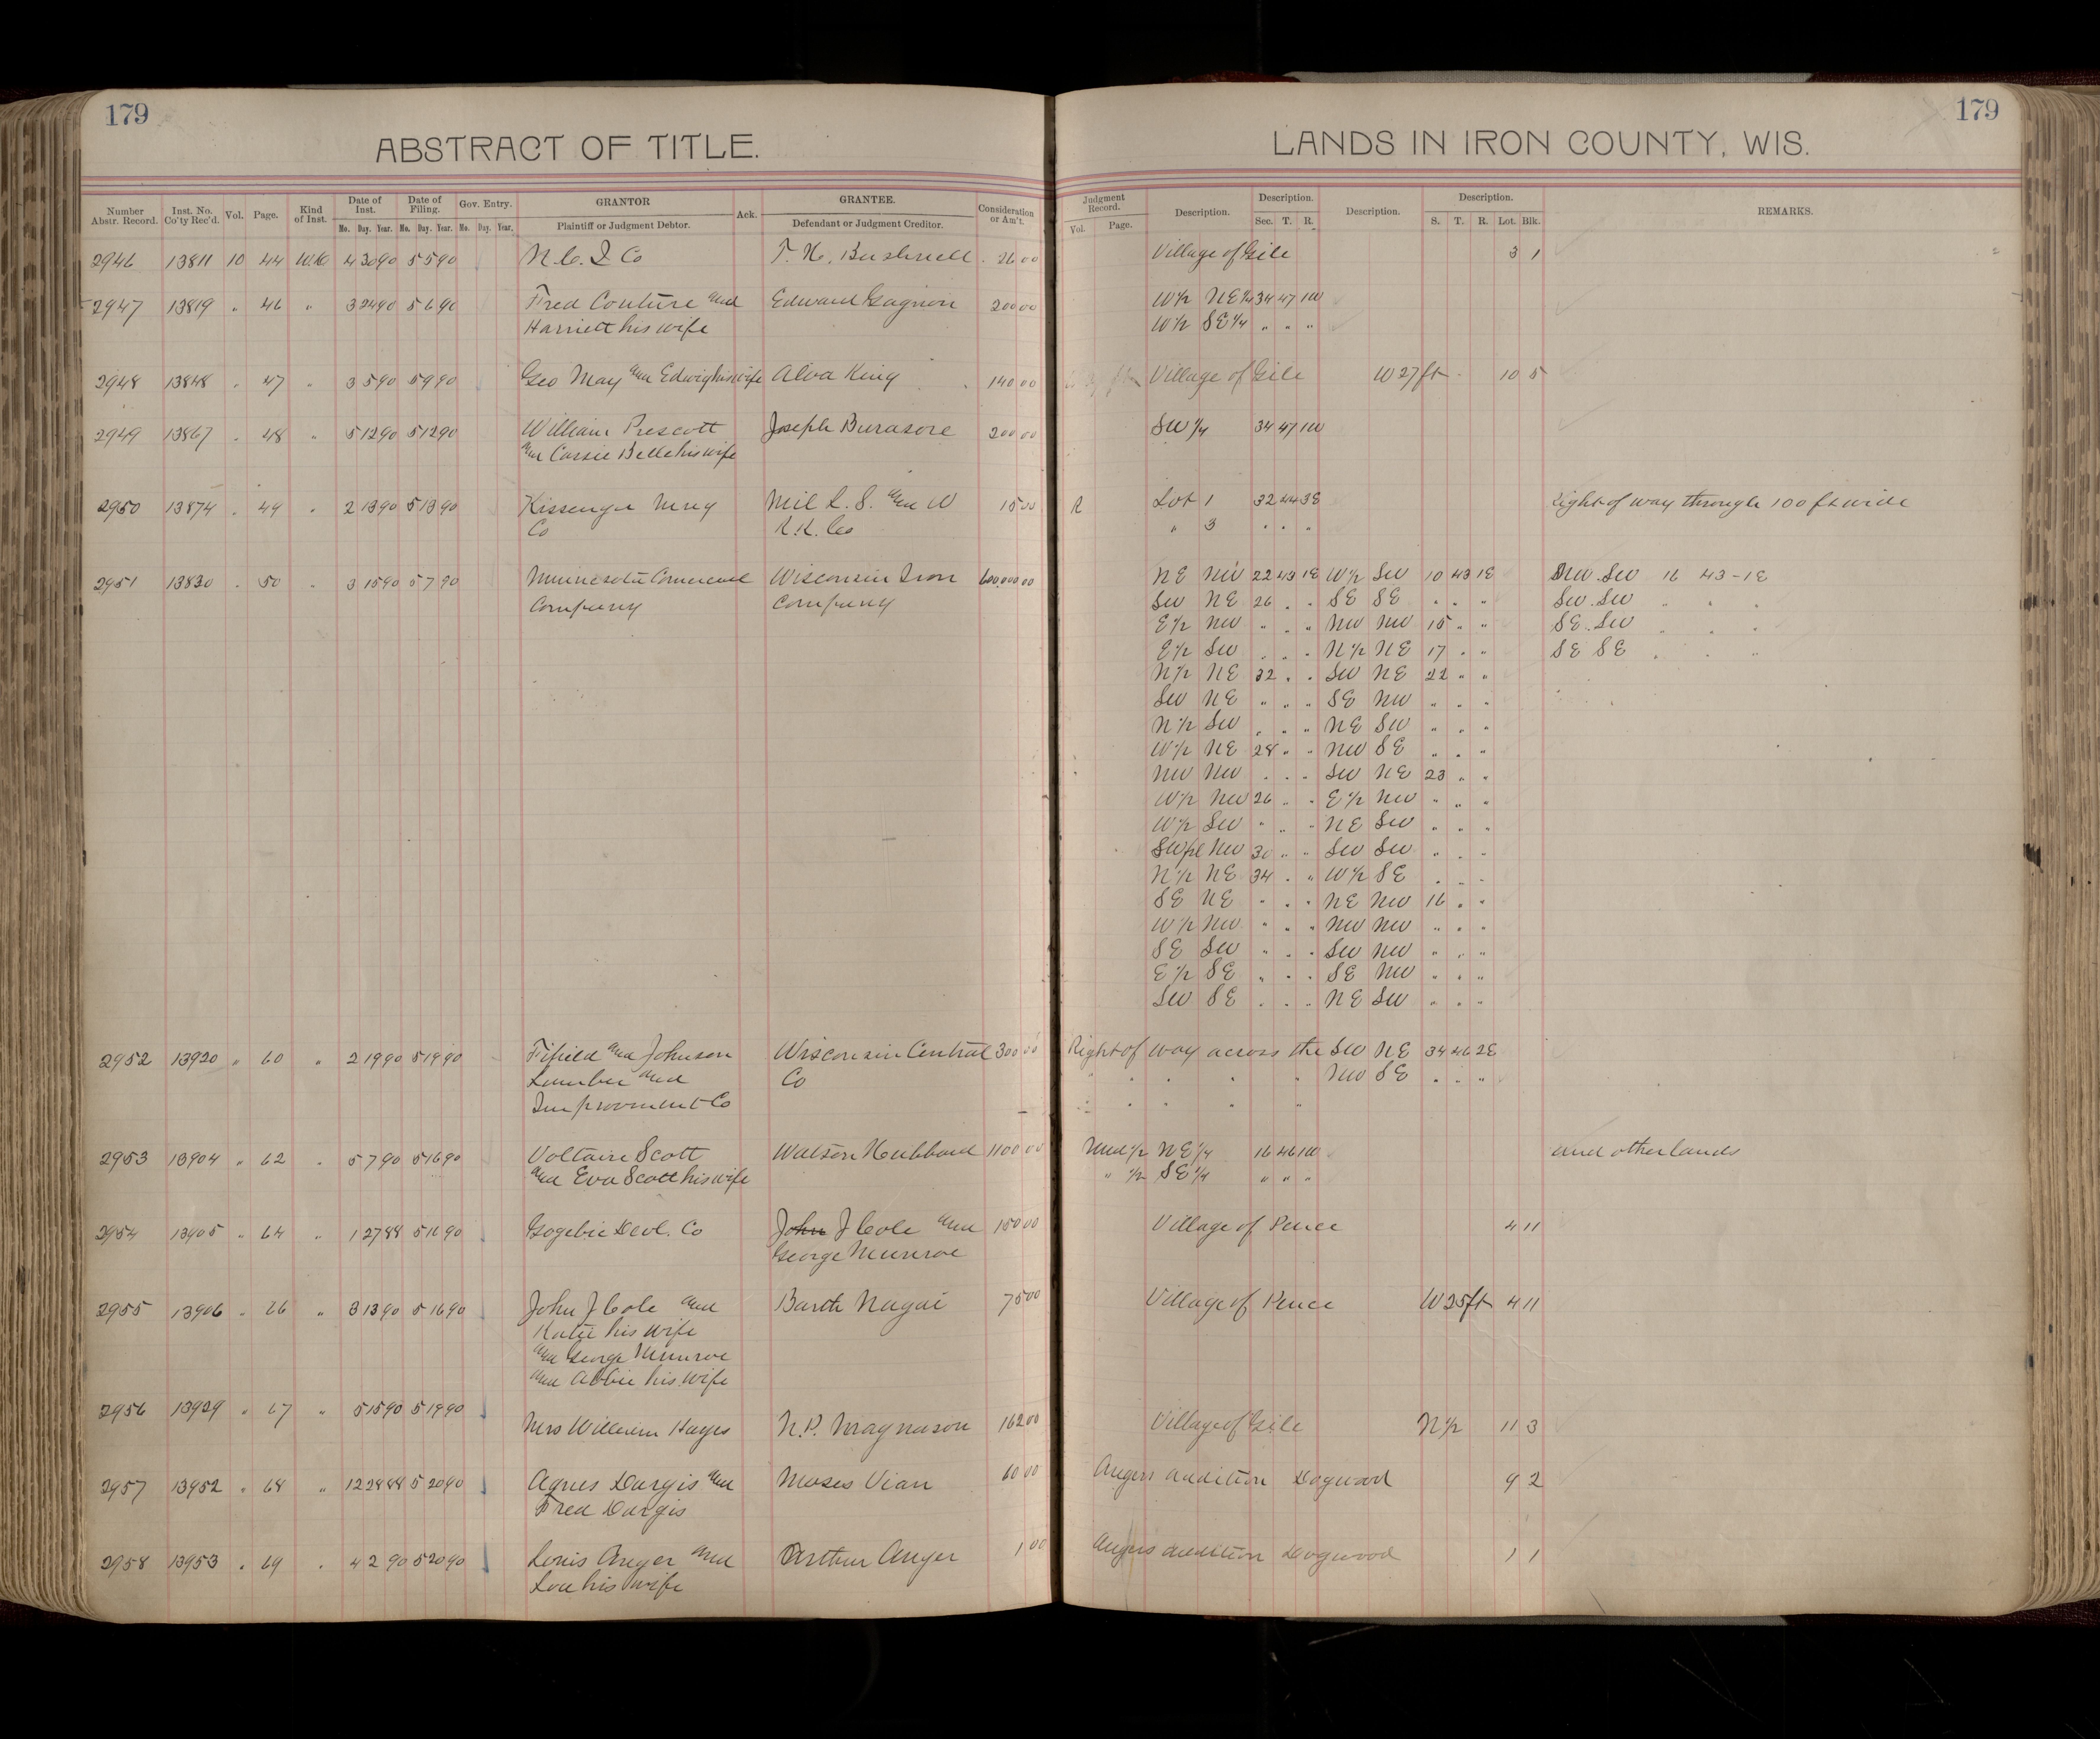 179
179
ABSTRACT OF TITLE.
LANDS IN IRON COUNTY, WIS.
Number Abstr. Record. Inst. No. Co'ty Rec'd. Vol. Page. Kind of Inst. Date of Inst. Date of Filing. Gov. Entry. GRANTOR Ack. GRANTEE. Consideration or Am't.
Mo. Day. Year. Mo. Day. Year. Mo. Day. Year. Plaintiff or Judgment Debtor. Defendant or Judgment Creditor.
Judgment Record. Description. Description. Description. Description. REMARKS.
Vol. Page. Sec. T. R. S. T. R. Lot. Blk.
2946 13811 10 44 4 30 90 5 5 90 N. C. I Co T. H. Bushnell 26 00 Village of Gile 3 1
2947 13819 " 46 " 3 24 90 5 6 90 Fred Couture and Edward Gagnon 200 00 W 1/2 NE 1/4 34 47 1W
Harriett his wife W 1/2 SE 1/4 " " "
2948 13848 " 47 " 3 5 90 5 9 90 Geo May and Edwig his wife Alva King 140 00 Village of Gile W 27 ft 10 5
2949 13867 " 48 " 5 12 90 5 12 90 William Prescott Joseph Burasore 200 00 SW 1/4 34 47 1W
and Cassie Belle his wife
2950 13874 " 49 " 2 13 90 5 13 90 Mil L. S. and W 15 00 R Lot 1 32 44 3E Right of way through 100 ft wide
Co R.R. Co " 3 " " "
2951 13830 " 50 " 3 15 90 5 7 90 Minnesota Commercial Wisconsin Iron 600,000 00 NE NW 22 43 1E W 1/2 SW 10 43 1E NW SW 16 43-1E
Company Company SW NE 26 " " SE SE " " " SW SW " " "
E 1/2 NW " " " NW NW 15 " " SE SW " " "
E 1/2 SW " " " N 1/2 NE 17 " " SE SE " " "
N 1/2 NE 32 " " SW NE 22 " "
SW NE " " " SE NW " " "
N 1/2 SW " " " NE SW " " "
W 1/2 NE 28 " " NW SE " " "
NW NW " " " SW NE 23 " "
W 1/2 NW 26 " " E 1/2 NW " " "
W 1/2 SW " " " NE SW " " "
NW 30 " " SW SW " " "
N 1/2 NE 34 " " W 1/2 SE " " "
SE NE " " " NE NW 16 " "
W 1/2 NW " " " NW NW " " "
SE SW " " " SW NW " " "
E 1/2 SE " " " SE NW " " "
SW SE " " " NE SW " " "
2952 13920 " 60 " 2 19 90 5 19 90 Fifield and Johnson Wisconsin Central 300 00 Right of way across the SW NE 34 46 2E
Lumber and Co " " " " " NW SE " " "
Improvement Co " " " " "
2953 13904 " 62 " 5 7 90 5 16 90 Voltaire Scott Watson Hubbard 1100 00 Und 1/2 NE 1/4 16 46 1W and other lands
and Eva Scott his wife " 1/2 SE 1/4 " " "
2954 13905 " 64 " 1 27 88 5 16 90 Gogebic Devl. Co John J Cole and 150 00 Village of Pence 4 11
George Munroe
2955 13906 " 66 " 3 13 90 5 16 90 John J Cole and Barth Nagai 75 00 Village of Pence W 25 ft 4 11
Katie his wife
and George Munroe
and Abbie his wife
2956 13929 " 67 " 5 15 90 5 19 90 Mrs William Hayes N. P. Magnason 162 00 Village of Gile N 1/2 11 3
2957 13952 " 68 " 12 28 88 5 20 90 Agnes Durgis and Moses Vian 60 00 Angers addition Dogwood 9 2
Fred Durgis
2958 13953 " 69 " 4 2 90 5 20 90 Louis Anger and Arthur Anger 1 00 Angers addition Dogwood 1 1
Lou his wife